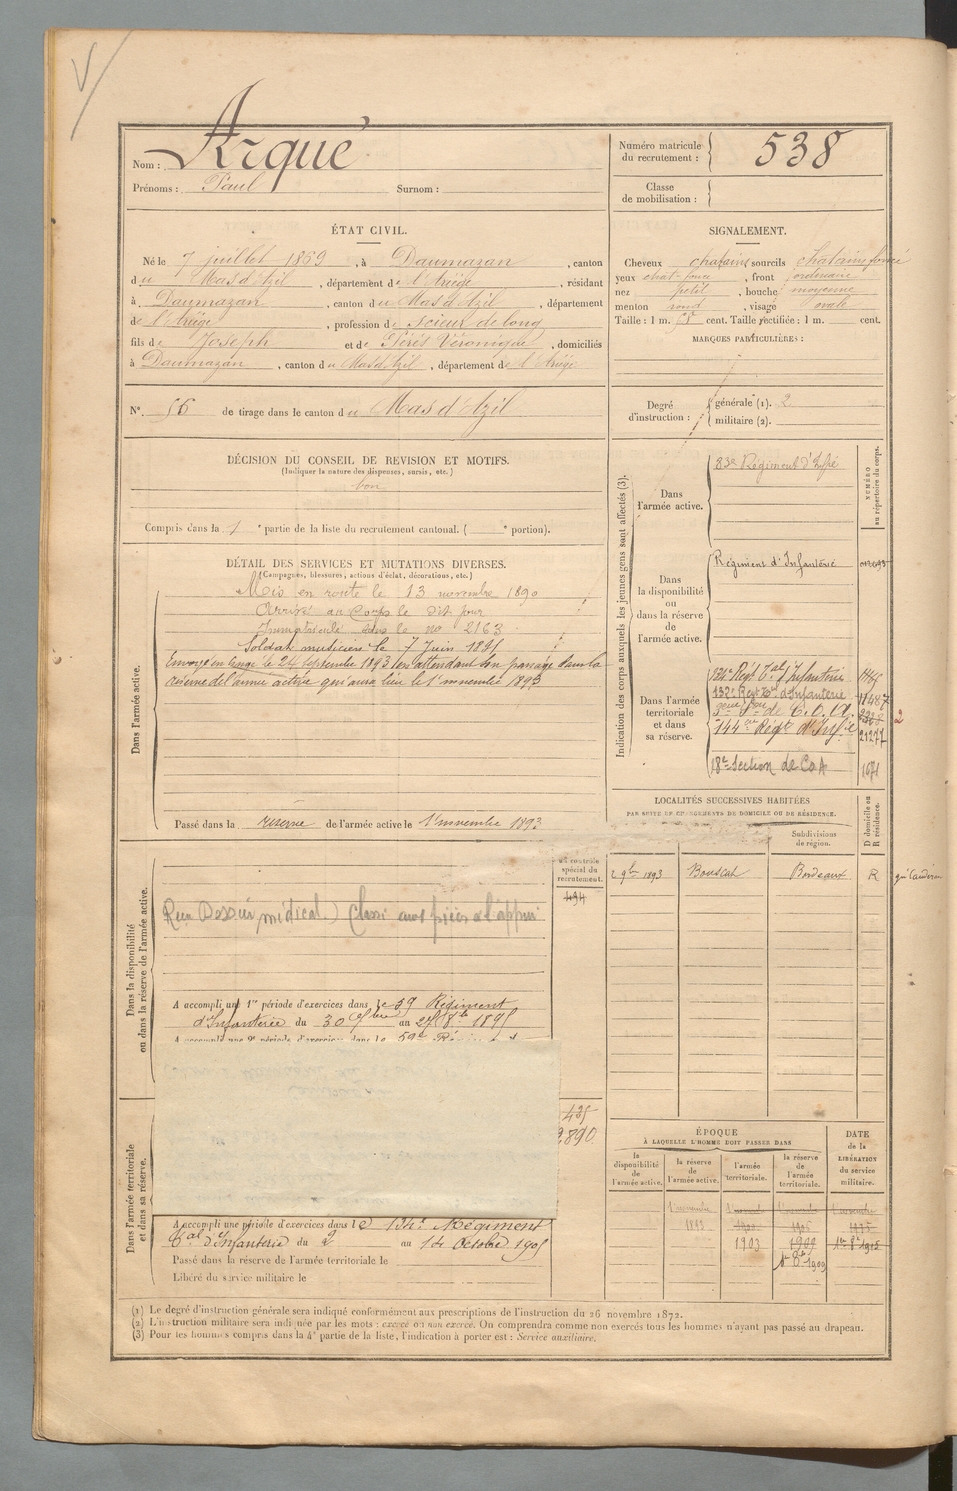 Nom : Arqué
Prénoms : Paul Surnom :
Numéro matricule du recrutement : 538
Classe de mobilisation :
ÉTAT CIVIL.
Né le 7 juillet 1869, à Daumazan, canton
du Mas d'Azil, département de l'Ariège, résidant
à Daumazan, canton du Mas d'Azil, département
de l'Ariège, profession de Scieur de long
fils de Joseph et de Pérès Véronique, domiciliés
à Daumazan, canton du Mas d'Azil, département de l'Ariège
SIGNALEMENT.
Cheveux chatains sourcils chatains foncé
yeux chat. foncé, front ordinaire
nez petit, bouche moyenne
menton rond, visage ovale
Taille : 1 m. cent. Taille rectifiée : 1 m. cent.
MARQUES PARTICULIÈRES :
N° 56 de tirage dans le canton du Mas d'Azil
Degré d'instruction : générale (1). 2
militaire (2).
DÉCISION DU CONSEIL DE REVISION ET MOTIFS.
(Indiquer la nature des dispenses, sursis, etc.)
bon
Compris dans la 1e partie de la liste du recrutement cantonal. ( e portion).
DÉTAIL DES SERVICES ET MUTATIONS DIVERSES.
(Campagnes, blessures, actions d'éclat, décorations, etc.)
Dans l'armée active.
Mis en route le 13 novembre 1890
Arrivé au Corps le dit jour
Immatriculé sous le no 2163
Soldat musicien le 7 Juin 1891
Envoyé en congé le 24 septembre 1893 en attendant son passage dans la
réserve de l'armée active qui aura lieu le 1er novembre 1893
Passé dans la réserve de l'armée active le 1er novembre 1893
Indication des corps auxquels les jeunes gens sont affectés (3).
NUMÉRO au répertoire du corps.
Dans l'armée active.
83e Régiment d'Infie
Dans la disponibilité ou dans la réserve de l'armée active.
Régiment d'Infanterie
Dans l'armée territoriale et dans sa réserve.
134e Régt Tal d'Infanterie
132e Regt Tal d'Infanterie 11487
de C.O.A. 2
144me Régt d'Infie 21277
18e Section de CoA 1671
LOCALITÉS SUCCESSIVES HABITÉES
PAR SUITE DE CHANGEMENTS DE DOMICILE OU DE RÉSIDENCE.
Subdivisions de région.
D domicile ou R résidence.
9bre 1893 Bouscat Bordeaux R
Dans la disponibilité ou dans la réserve de l'armée active.
n° contrôle spécial du recrutement.
434
médical) Classé aux pièces à l'appui
A accompli une 1re période d'exercices dans le 59 Régiment
d'Infanterie du 30 7bre au 27 8bre 1895
A accompli une 2e période d'exercices dans le 59e
Dans l'armée territoriale et dans sa réserve.
435
890
A accompli une période d'exercices dans le 134e Régiment
Tal d'Infanterie du 2 au 14 Octobre 1905
Passé dans la réserve de l'armée territoriale le
Libéré du service militaire le
ÉPOQUE
À LAQUELLE L'HOMME DOIT PASSER DANS
la disponibilité de l'armée active.
la réserve de l'armée active.
l'armée territoriale.
la réserve de l'armée territoriale.
DATE de la LIBÉRATION du service militaire.
1er novembre 1893
1903 1909 1er 8bre 1915
1er 8bre 1909
(1) Le degré d'instruction générale sera indiqué conformément aux prescriptions de l'instruction du 26 novembre 1872.
(2) L'instruction militaire sera indiquée par les mots : exercé ou non exercé. On comprendra comme non exercés tous les hommes n'ayant pas passé au drapeau.
(3) Pour les hommes compris dans la 4e partie de la liste, l'indication à porter est : Service auxiliaire.